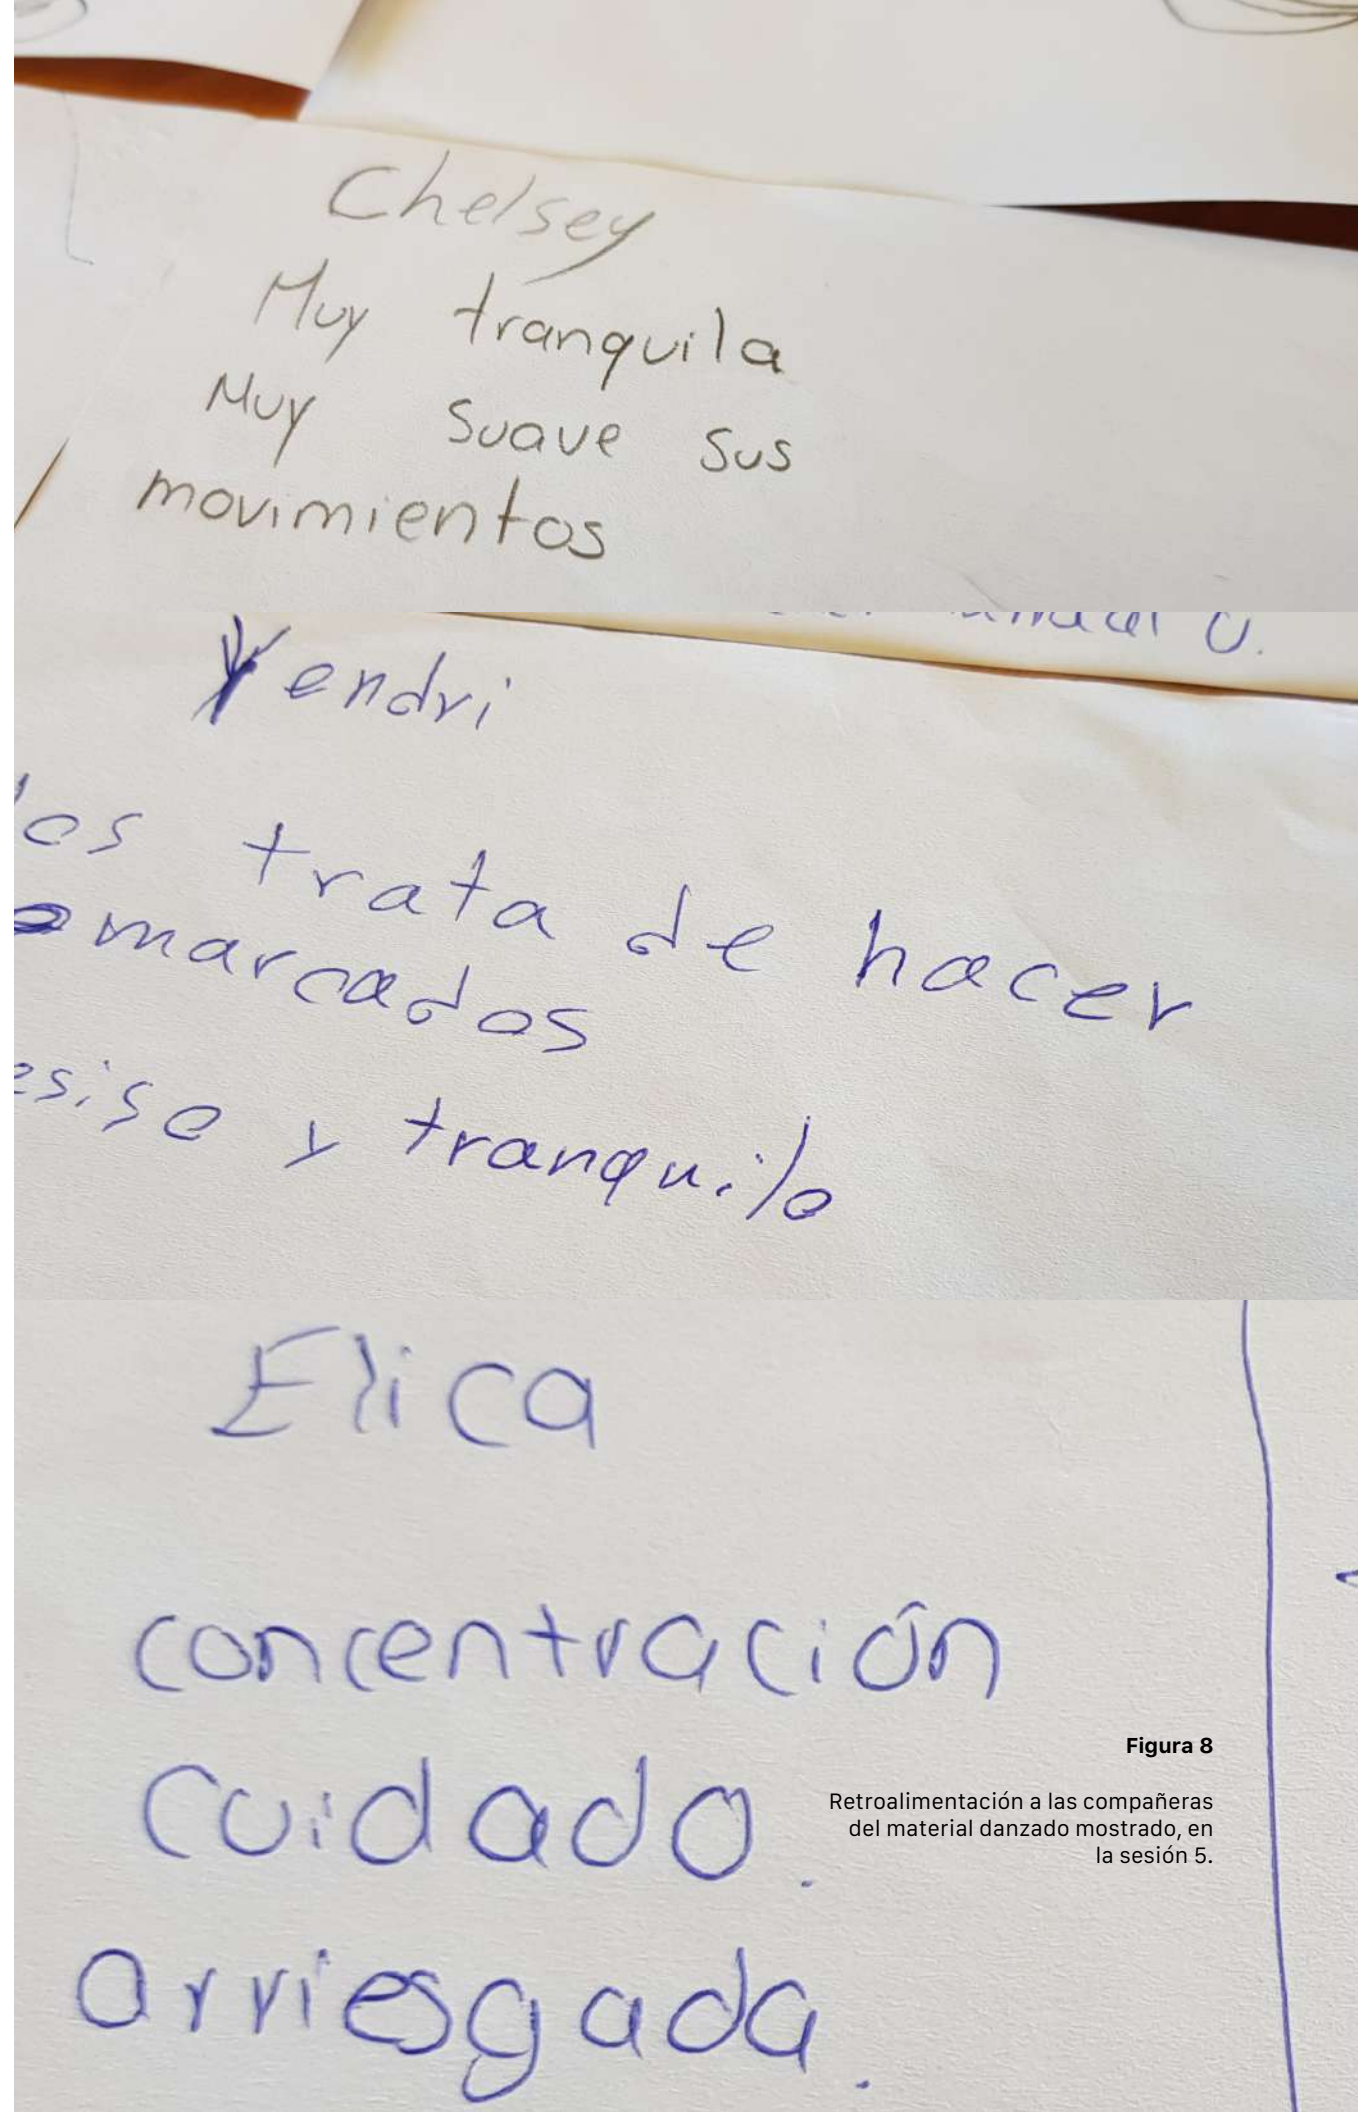 Chelsey
Muy tranquila
Muy suave sus
movimientos
Yendri
trata de hacer
marcados
y tranquilo
Elica
concentración
cuidado.
arriesgada.
Figura 8
Retroalimentación a las compañeras
del material danzado mostrado, en
la sesión 5.